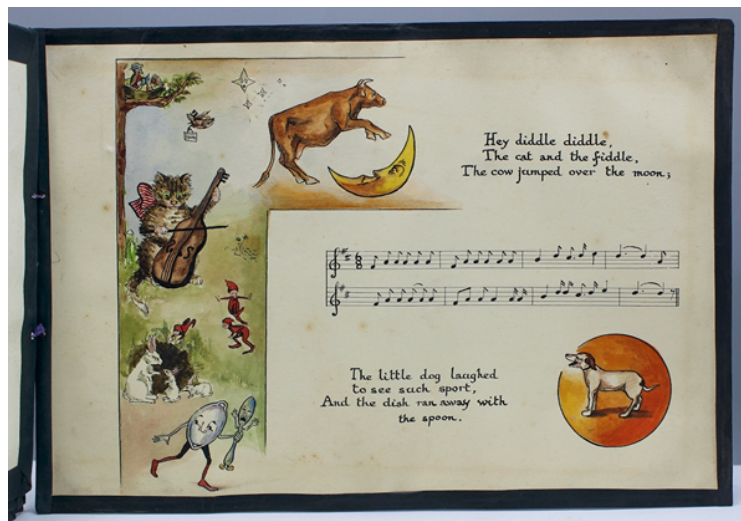 Hey diddle diddle,
The cat and the fiddle,
The cow jumped over the moon;
The little dog laughed
to see such sport,
And the dish ran away with
the spoon.